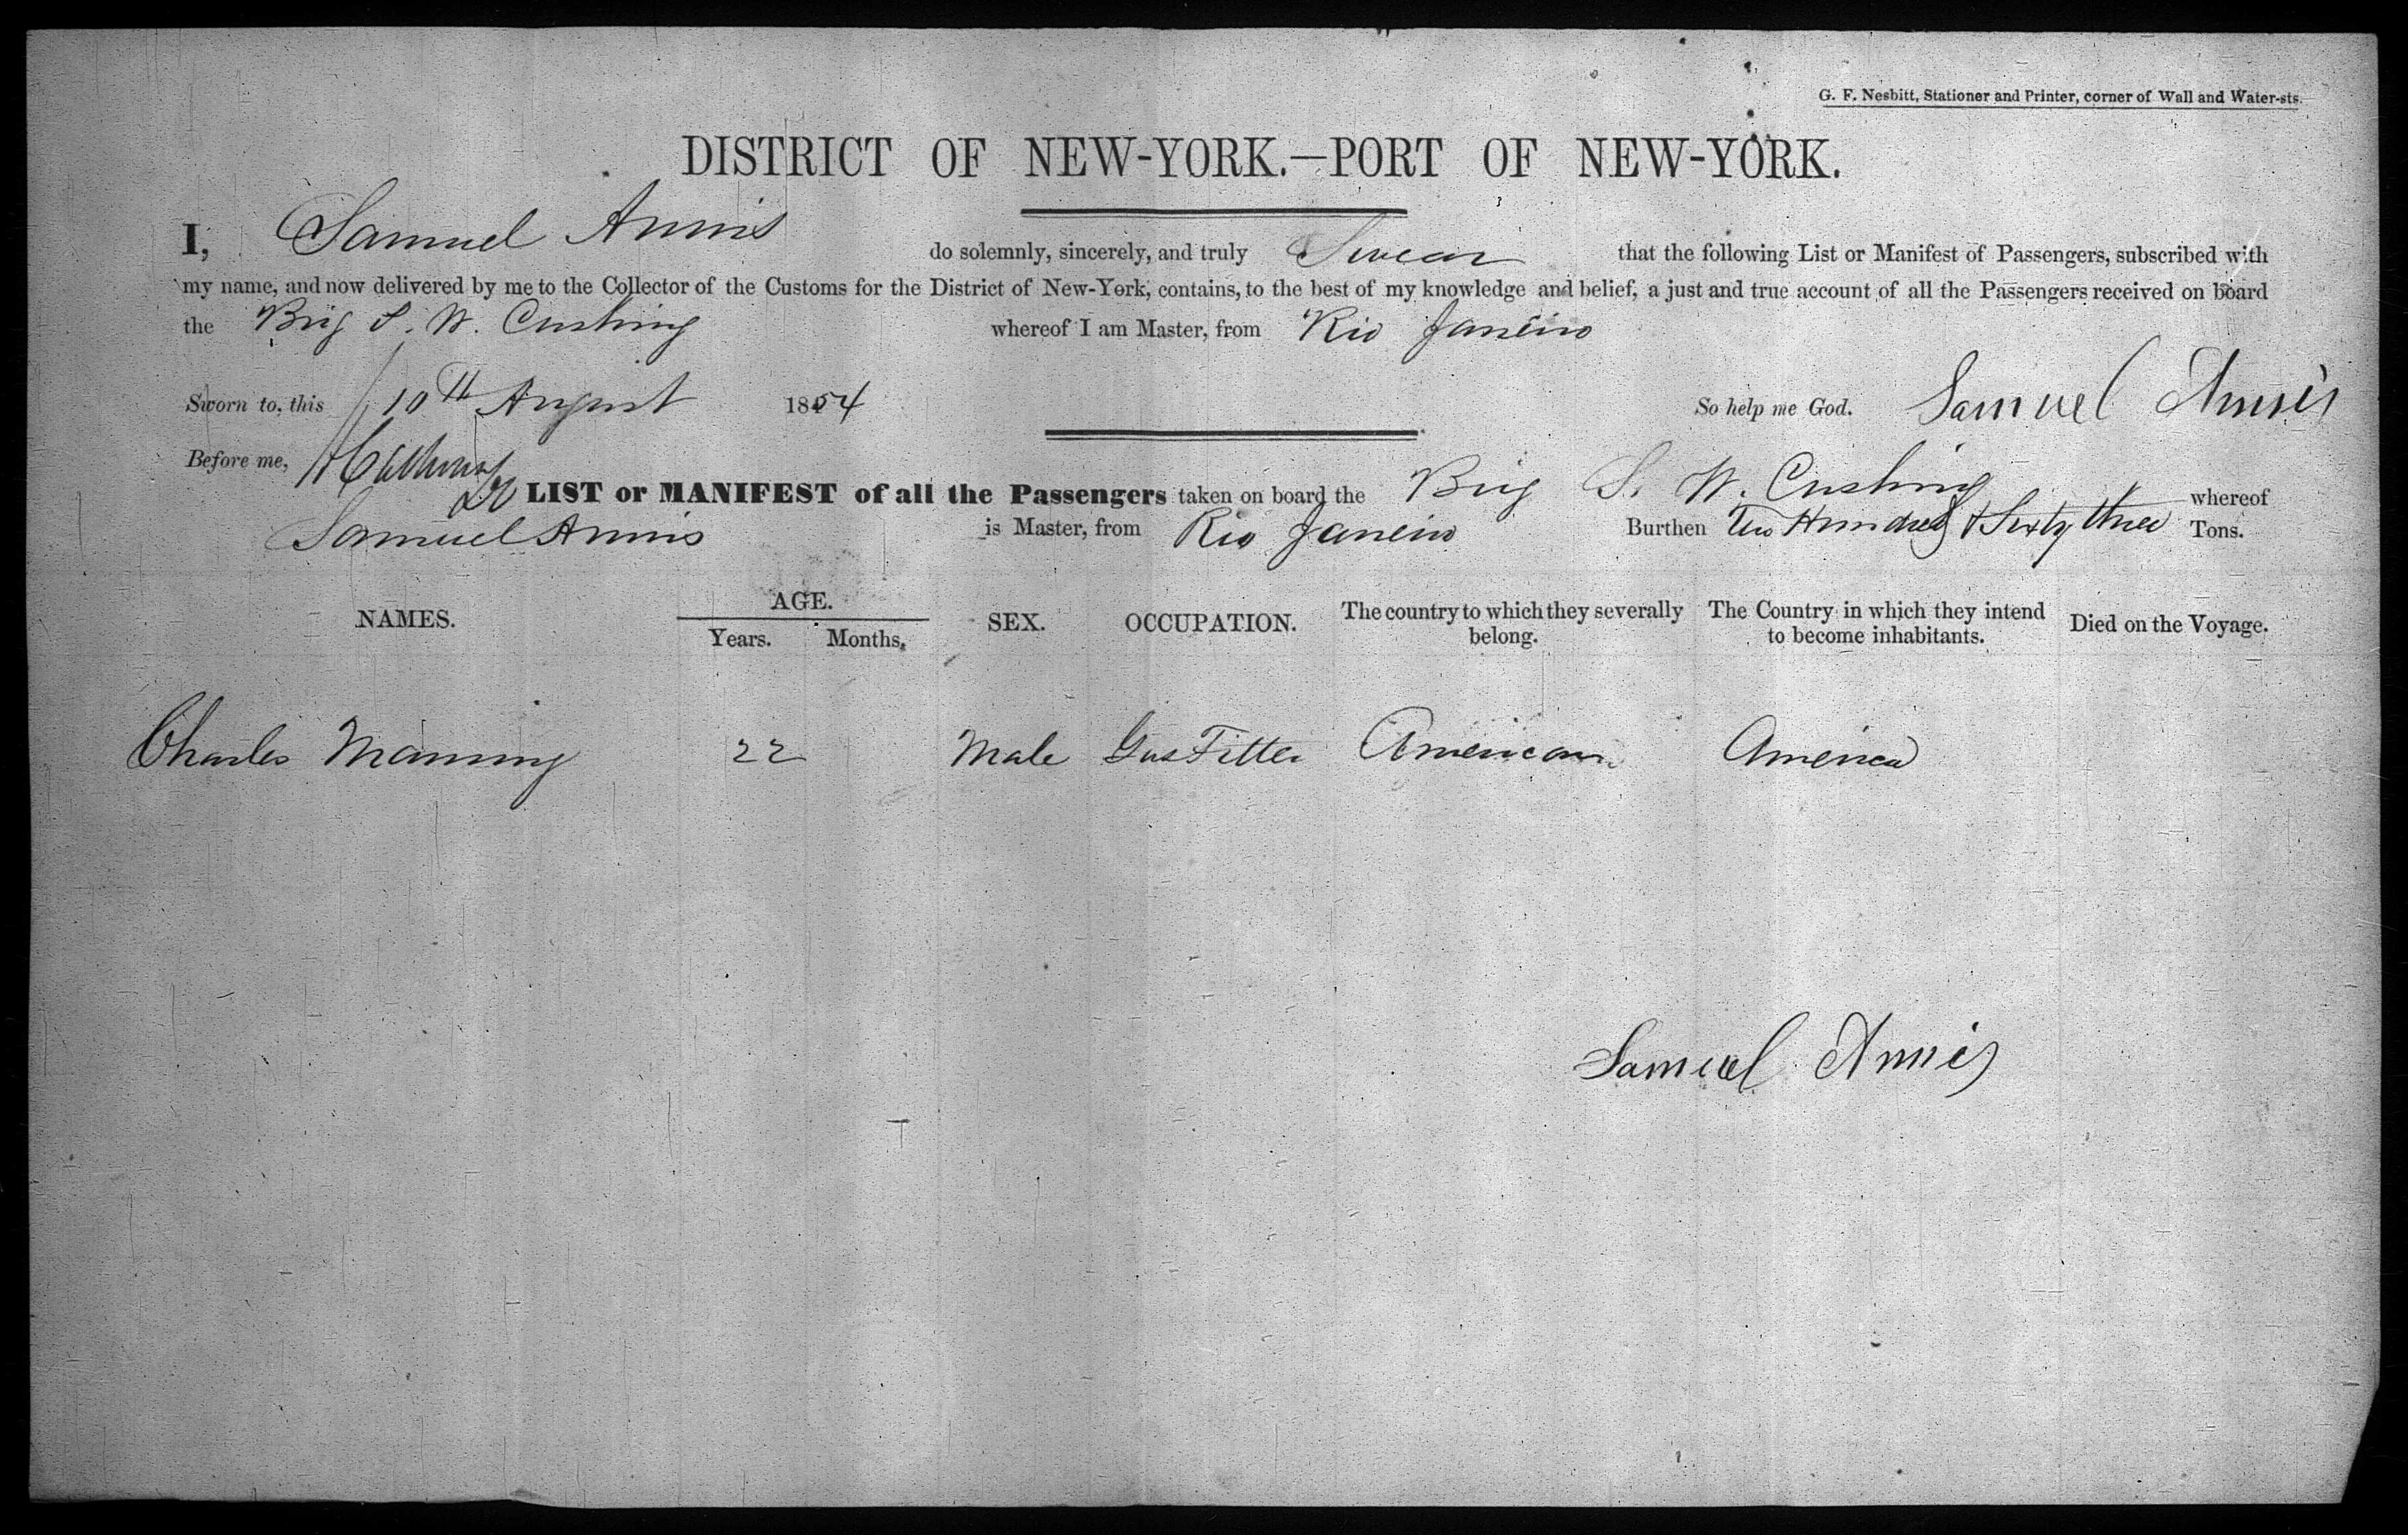 G. F. Nesbitt, Stationer and Printer, corner of Wall and Water-sts.
DISTRICT OF NEW-YORK.—PORT OF NEW-YORK.
I, Samuel Annis do solemnly, sincerely, and truly Swear that the following List or Manifest of Passengers, subscribed with
my name, and now delivered by me to the Collector of the Customs for the District of New-York, contains, to the best of my knowledge and belief, a just and true account of all the Passengers received on board
the Brig S. W. Cushing whereof I am Master, from Rio Janeiro
Sworn to, this 10th August 1854 So help me God. Samuel Annis
Before me,
LIST or MANIFEST of all the Passengers taken on board the Brig S. W. Cushing whereof
Samuel Annis is Master, from Rio Janeiro Burthen Two Hundred & Sixty three Tons.
NAMES. AGE. Years. Months. SEX. OCCUPATION. The country to which they severally belong. The Country in which they intend to become inhabitants. Died on the Voyage.
Charles Manning 22 Male Gas Fitter American America
Samuel Annis